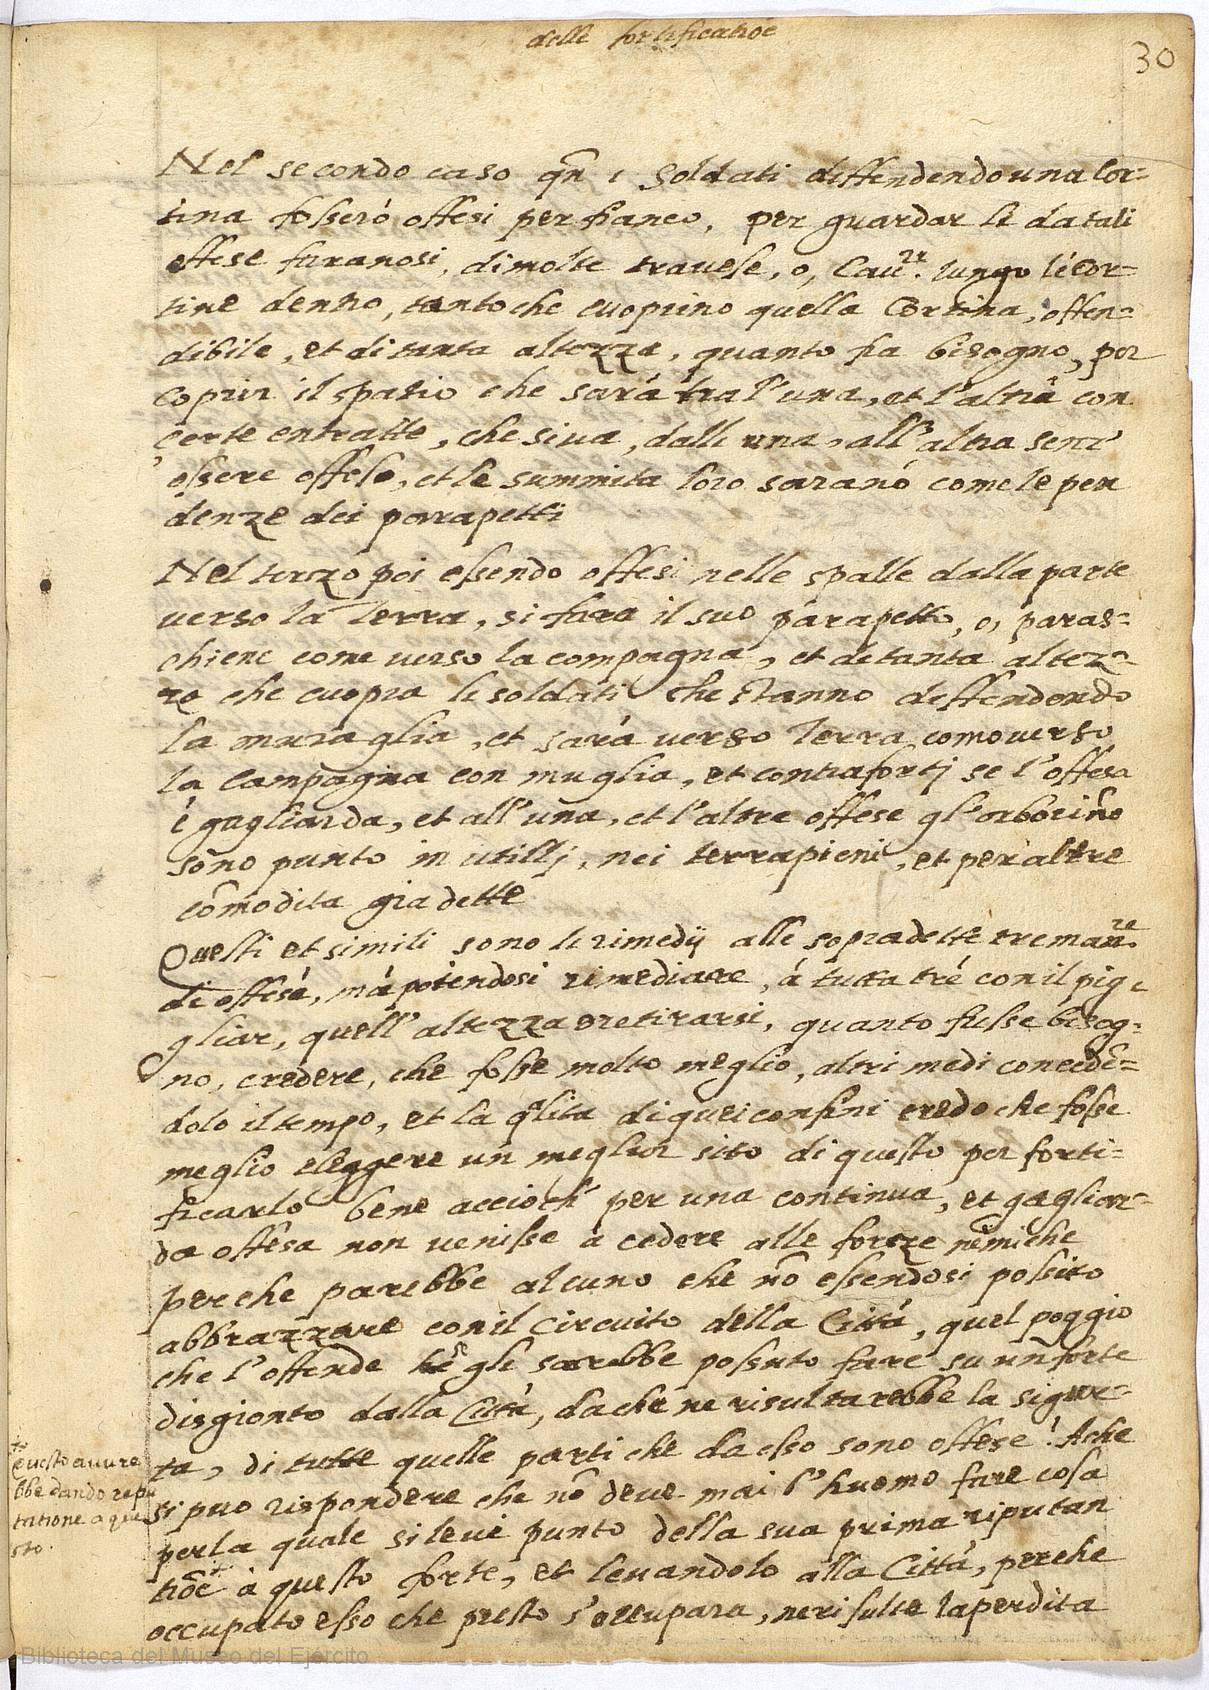 delle fortificatiõe
30
Nel secondo caso qñ i soldati deffendendo una Cor-
tina fosserò offesi per fianco, per guardar li da tali
offese faranosi, di molte travese, o, Cau.re lungo le cor-
tine dentro, tanto che cuoprino quella Cortina, offen-
dibile, et di tanta altezza, quanto fia bisogno, per
coprir il spatio che sarà tra l'una, et l'altra con
certe entratte, che si ua, dall una, all'altra senz'
essere offeso, et le summita loro sarano come le pen
denze dei parapetti
Nel terzo poi essendo offesi nelle spalle dalla parte
verso la Terra, si fara il suo parapetto, o, paras-
chiene come verso la compagna, et de tanta altez-
za che cuopra li soldati che stanno deffendendo
la muraglia, et sarà verso Terra como verso
la Campagna con muglia, et contrafortj se l'offesa
è gagliarda, et all'una, et l'altre offese gl'arbori nõ
sono punto in utillj, nei terrapieni, et per altre
cõmodita gia dette
Questi et simili sono li rimedij alle sopradette tre man.re
di offesa, mà potendosi rimediare, á tutta tré con il pig
gliar, quell'altezza o retirarsi, quanto fusse bisog-
no, credere, che fosse molto meglio, altri medi concedẽ-
dolo il tempo, et la qlita di quei confini credo che fosse
meglio eleggere un meglior sito di questo per forti-
ficarlo bene accioch' per una continua, et gagliar-
da offesa non venisse a cedere alle forze nẽmiche
perche parebbe alcuno che nõ essendosi possuto
abbrazzare con il circuito della Città, quel poggio
che l'offende gli sarebbe possuto fare su un forte
disgionto dalla Città, da che ne risultarebbe la sigur-
ta, di tutte quelle parti che da esso sono offese! A che
si puo rispondere che nõ deve mai l'huomo fare cosa
per la quale si leve punto della sua prima riputan
tiõe + à questo forte, et levandolo alla Città, perche
occupato esso che presto s'occupara, ne risulte la perdita
+
Questo avvre
bbe dando repu
tatione a que
sto.
Biblioteca del Museo del Ejército